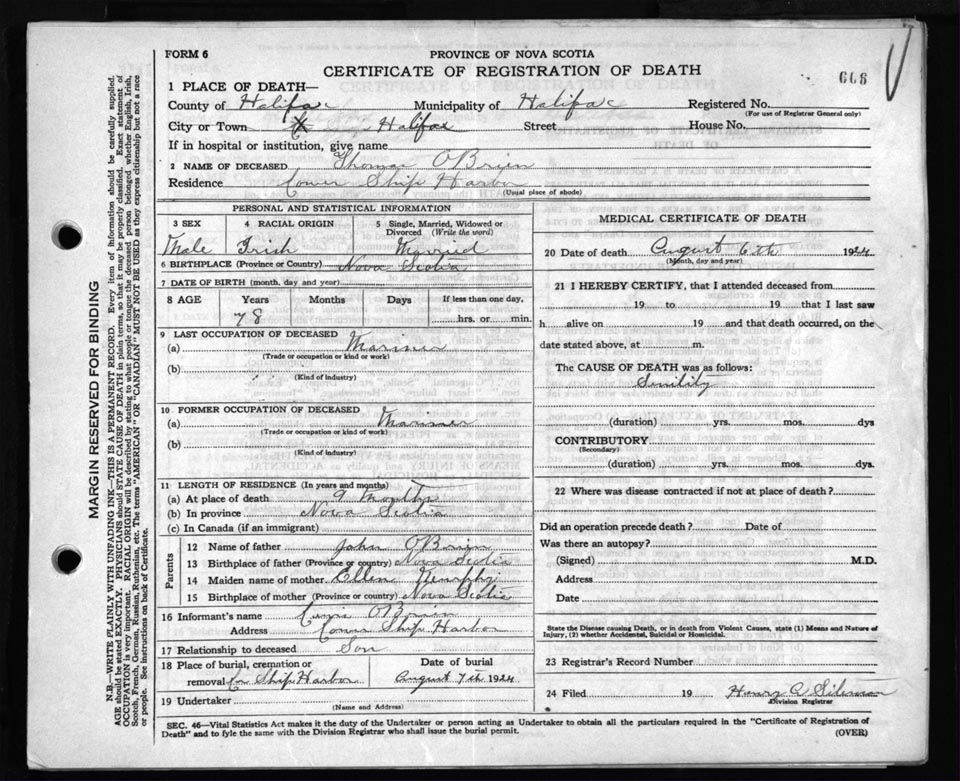 FORM 6
PROVINCE OF NOVA SCOTIA
CERTIFICATE OF REGISTRATION OF DEATH
668
1 PLACE OF DEATH—
County of Halifax Municipality of Halifax Registered No.
(For use of Registrar General only)
City or Town Halifax Street House No.
If in hospital or institution, give name
2 NAME OF DECEASED Thomas OBrien
Residence Lower Ship Harbor
(Usual place of abode)
PERSONAL AND STATISTICAL INFORMATION
3 SEX 4 RACIAL ORIGIN 5 Single, Married, Widowed or Divorced (Write the word)
Male Irish Married
6 BIRTHPLACE (Province or Country) Nova Scotia
7 DATE OF BIRTH (month, day and year)
8 AGE Years Months Days If less than one day,
78 hrs. or min.
9 LAST OCCUPATION OF DECEASED
(a) Mariner
(Trade or occupation or kind or work)
(b)
(Kind of industry)
10 FORMER OCCUPATION OF DECEASED
(a) Mariner
(Trade or occupation or kind of work)
(b)
(Kind of industry)
11 LENGTH OF RESIDENCE (In years and months)
(a) At place of death 9 Months
(b) In province Nova Scotia
(c) In Canada (if an immigrant)
Parents
12 Name of father John OBrien
13 Birthplace of father (Province or country) Nova Scotia
14 Maiden name of mother Ellen
15 Birthplace of mother (Province or country) Nova Scotia
16 Informant's name OBrien
Address Lower Ship Harbor
17 Relationship to deceased Son
18 Place of burial, cremation or removal Ship Harbor Date of burial August 7th 1924
19 Undertaker
(Name and Address)
MEDICAL CERTIFICATE OF DEATH
20 Date of death August 6th 1924
(Month, day and year)
21 I HEREBY CERTIFY, that I attended deceased from
19 to 19 that I last saw
h alive on 19 and that death occurred, on the
date stated above, at m.
The CAUSE OF DEATH was as follows:
Senility
(duration) yrs. mos. dys
CONTRIBUTORY
(Secondary)
(duration) yrs. mos. dys.
22 Where was disease contracted if not at place of death?
Did an operation precede death? Date of
Was there an autopsy?
(Signed) M.D.
Address
Date
State the Disease causing Death, or in death from Violent Causes, state (1) Means and Nature of
Injury, (2) whether Accidental, Suicidal or Homicidal.
23 Registrar's Record Number
24 Filed 19 Henry
Division Registrar
SEC. 46—Vital Statistics Act makes it the duty of the Undertaker or person acting as Undertaker to obtain all the particulars required in the "Certificate of Registration of
Death" and to fyle the same with the Division Registrar who shall issue the burial permit. (OVER)
MARGIN RESERVED FOR BINDING
N.B.—WRITE PLAINLY WITH UNFADING INK—THIS IS A PERMANENT RECORD. Every item of information should be carefully supplied.
AGE should be stated EXACTLY. PHYSICIANS should STATE CAUSE OF DEATH in plain terms, so that it may be properly classified. Exact statement of
OCCUPATION is very important. RACIAL ORIGIN will be described by stating to what people or tongue the deceased person belonged whether English, Irish,
Scotch, French, German, Russian, Ruthenian, etc. The terms "AMERICAN" OR "CANADIAN" MUST NOT BE USED as they express citizenship but not a race
or people. See instructions on back of Certificate.